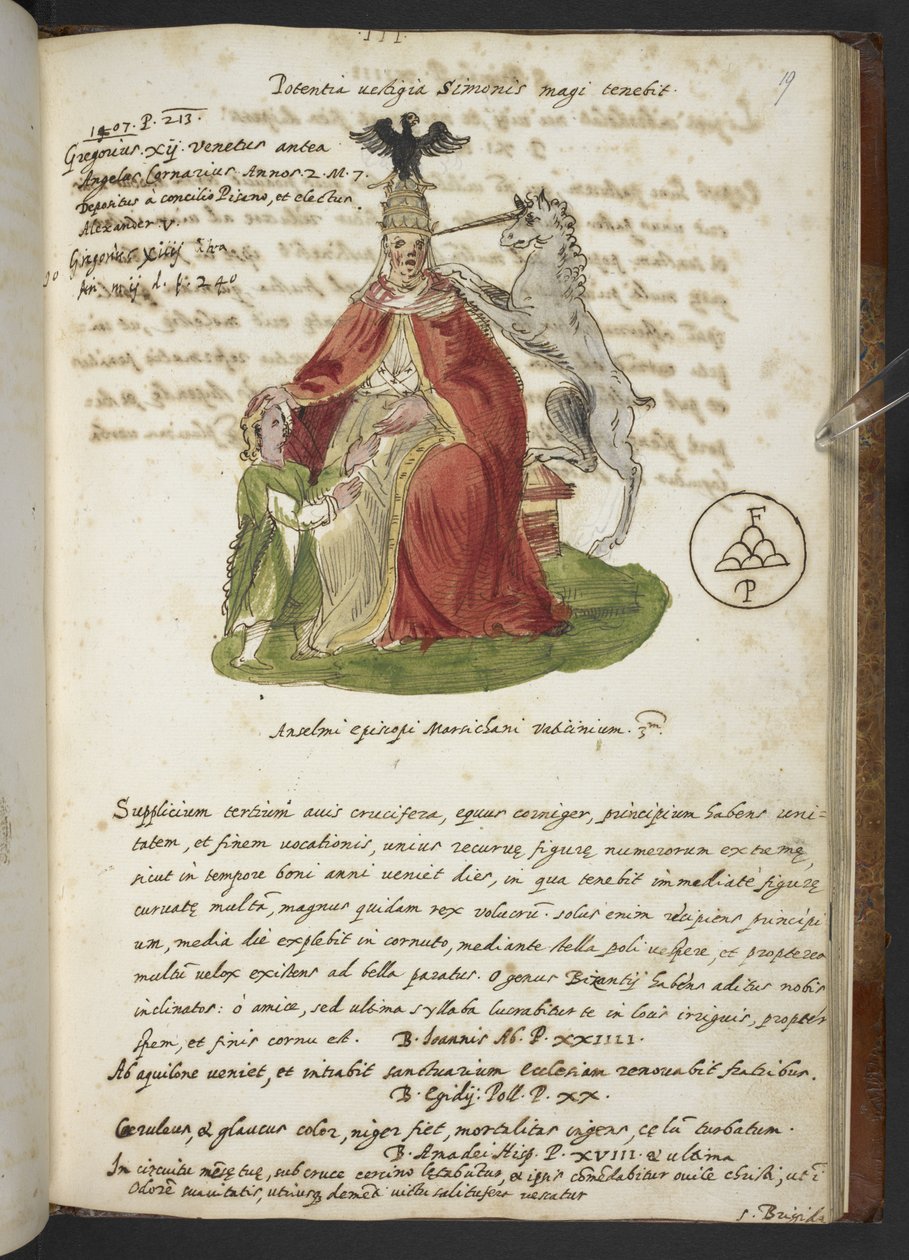 III
19
Potentia vestigia Simonis magi tenebit.
1407. P. 213.
Gregorius. xij. Venetus antea
Angelus Cornarius Annos. 2. M. 7.
Depositus à concilio Pisano, et electus
Alexander V.
Gregorius XIIIJ
d. f. 240
F
P
Anselmi episcopi Marsichani Vaticinium. 3m.
Supplicium tertium avis crucifera, equus corniger, principium habens uni=
tatem, et finem vocationis, unius recurvę figurę numerorum extremę,
sicut in tempore boni anni veniet dies, in qua tenebit immediatè figurę
curvatę multã, magnus quidam rex volucrũ. solus enim recipiens principi
um, media die explebit in cornuto, mediante stella poli vespere, et propterea
multũ velox existens ad bella paratus. o genus Bizantij habẽns aditus nobis
inclinatos: ò amice, sed ultima syllaba lucrabitur te in locis irriguis, propter
spem, et finis cornu est. B. Ioannis Ab. P. XXIIII.
Ab aquilone veniet, et intrabit sanctuarium Ecclesiam renovabit fratribus.
B. Egidij. Poll. P. XX.
Cęruleus, & glaucus color, niger fiet, mortalitas ingens, cęlũ turbatum.
B. Amadei Hisp. P. XVIII. & ultima
In circuitu mẽsę tuę, sub cruce cervino lętabũtur, & ipsis cõmẽdabitur ovile christi, ut ĩ
Odorẽ suavitatis, victu salutifero vescatur
S. Brigida